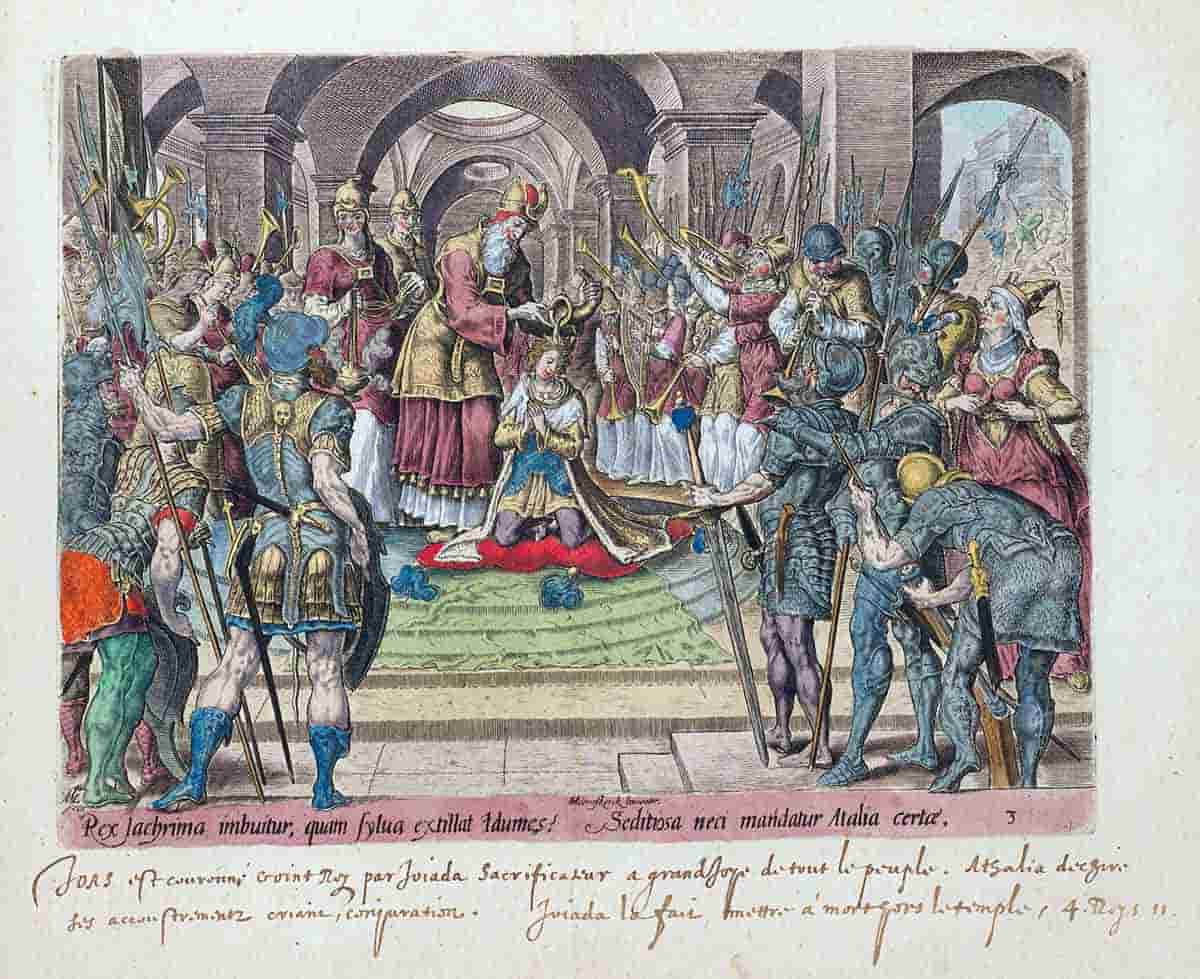 Hæmskerck Inventor.
Rex lachrima imbuitur, quam sylua extillat Idumes: Seditiosa neci mandatur Atalia certæ. 3
JOAS est couronné & oint Roy par Joiada Sacrificateur a grand Joye de tout le peuple. Athalia dechire
ses accoustrements criant, conjuration. Joiada la fait mettre à mort hors le temple, 4. Roys 11.